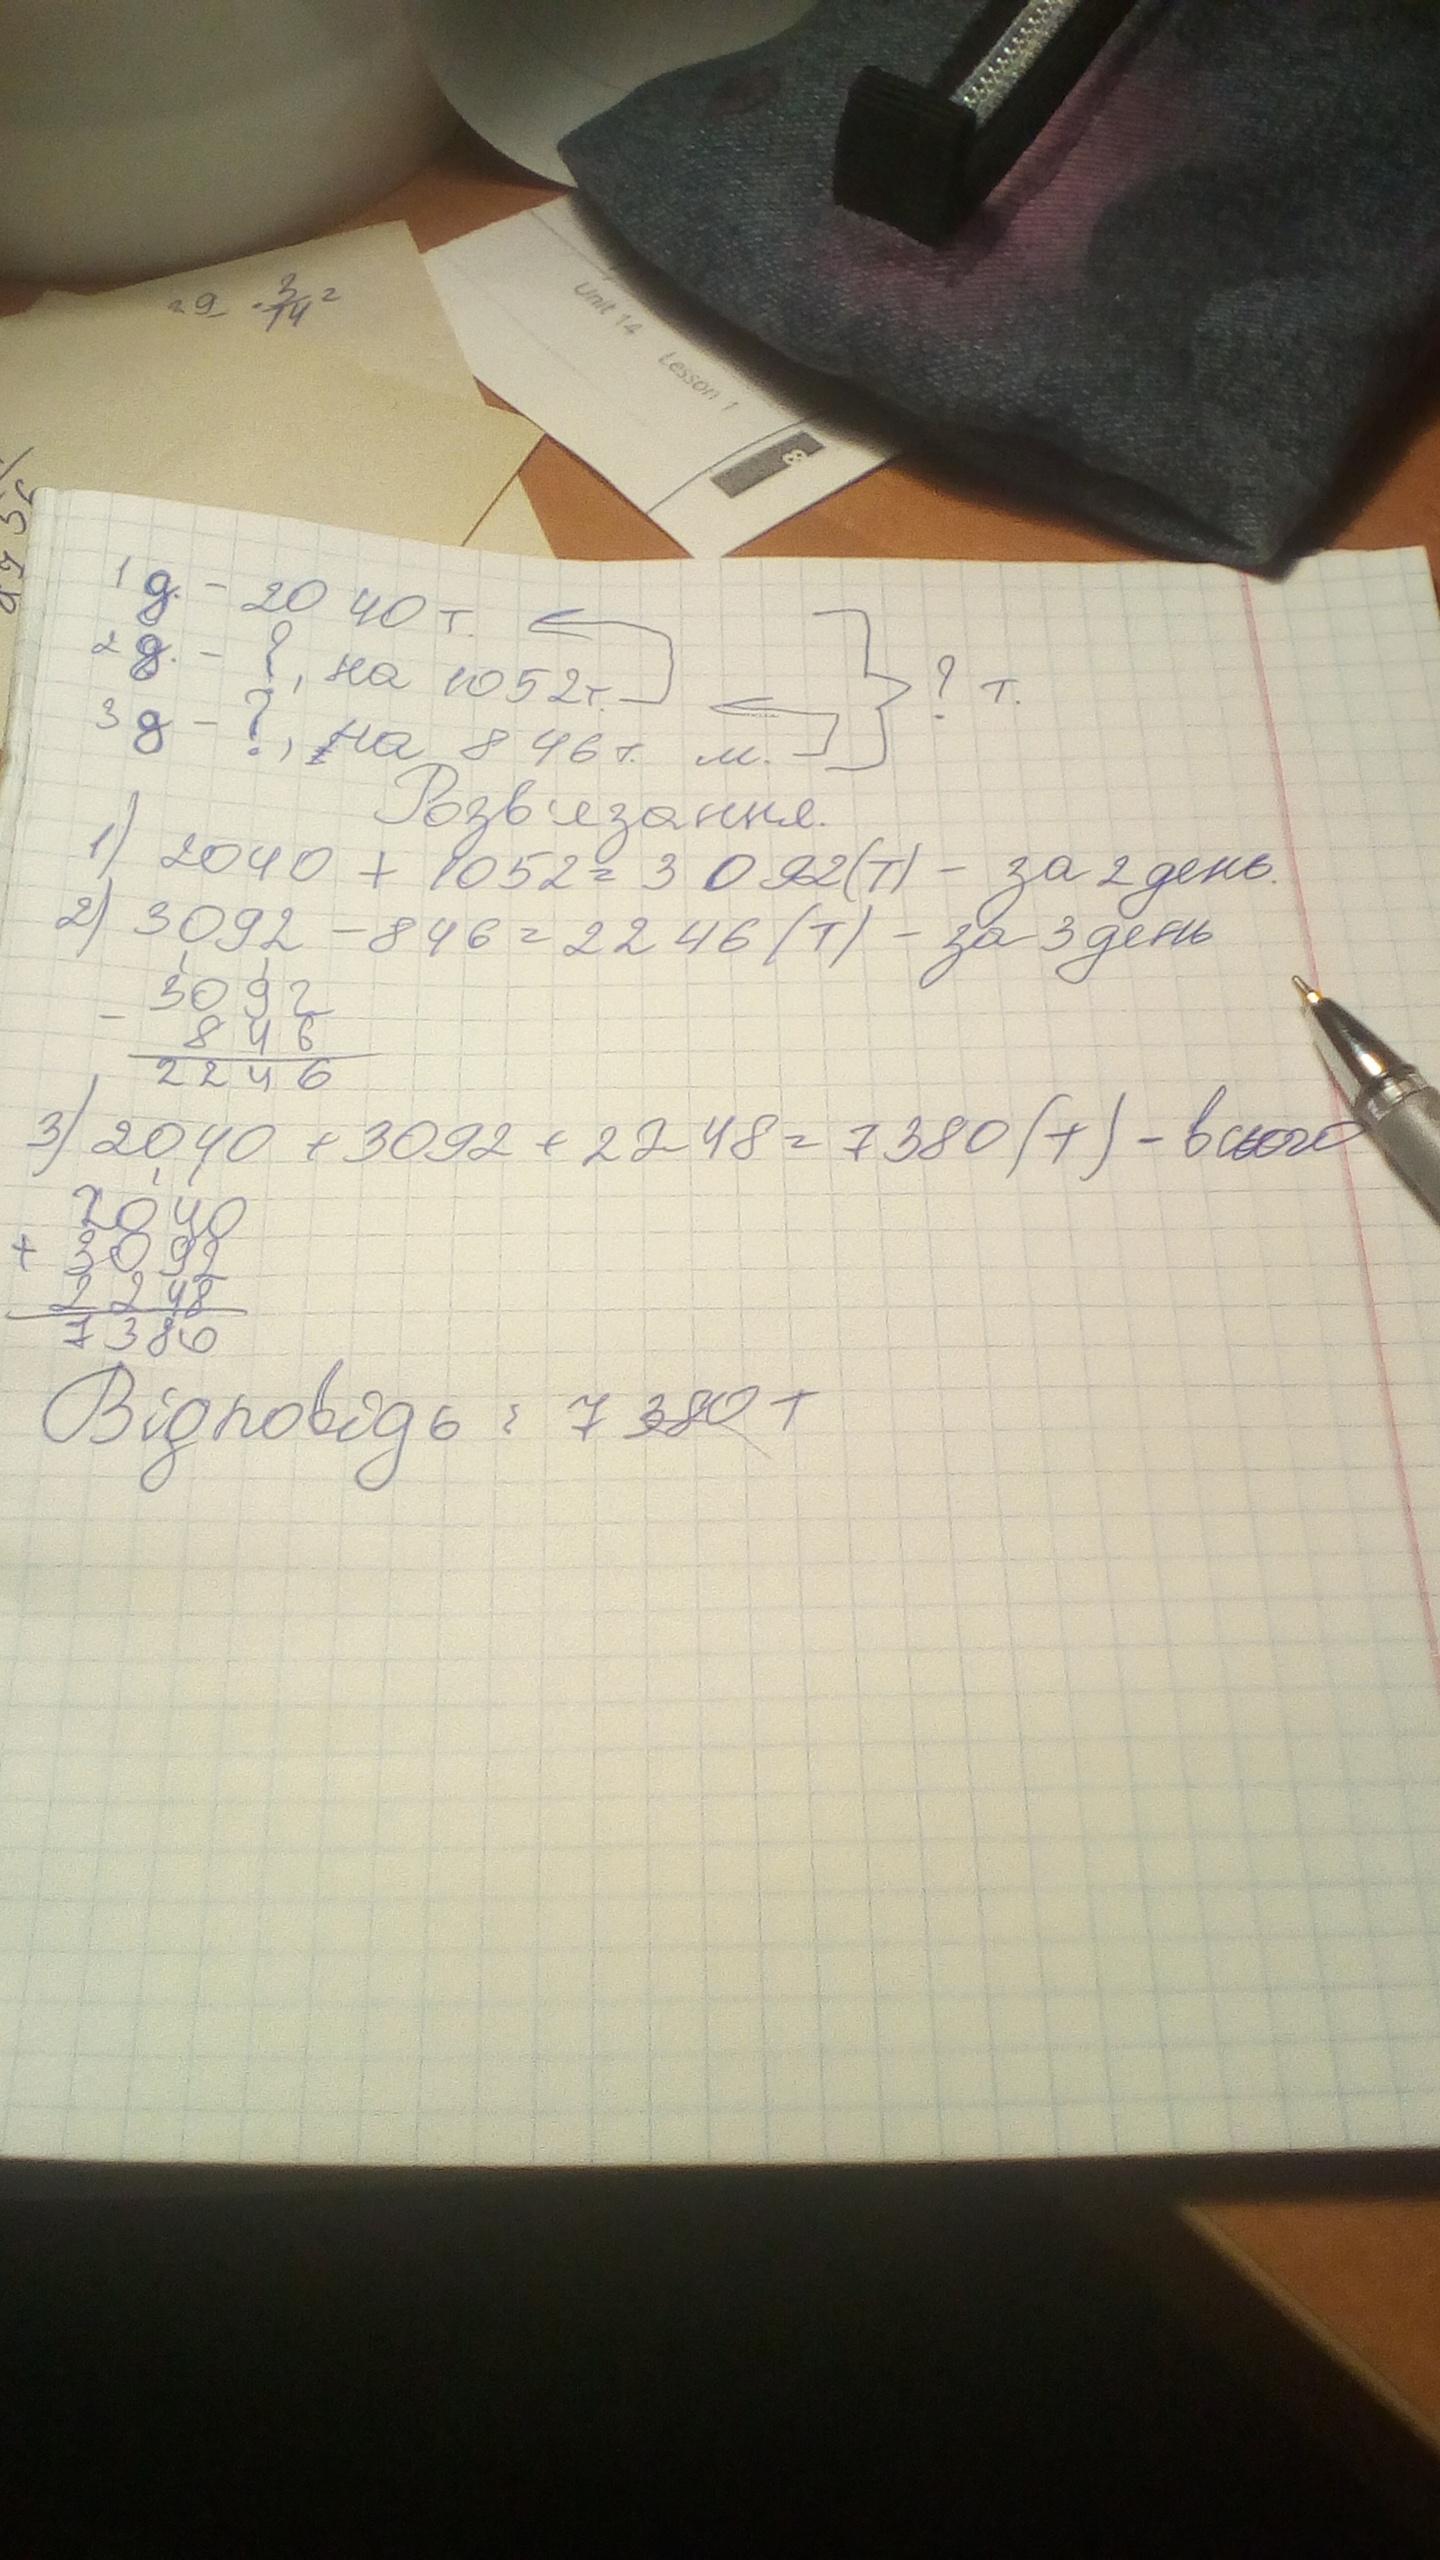 29 · 3/14 2
Unit 14 Lesson 1
8
1 д. - 2040 т.
2 д. - ?, на 1052 т.
3 д - ?, на 846 т. м.
? т.
Розв'язання.
1) 2040 + 1052 = 3092 (т) - за 2 день.
2) 3092 - 846 = 2246 (т) - за 3 день
- 3092
846
2246
3) 2040 + 3092 + 2248 = 7380 (т) - всього
2040
+ 3092
2248
7380
Відповідь : 7380 т